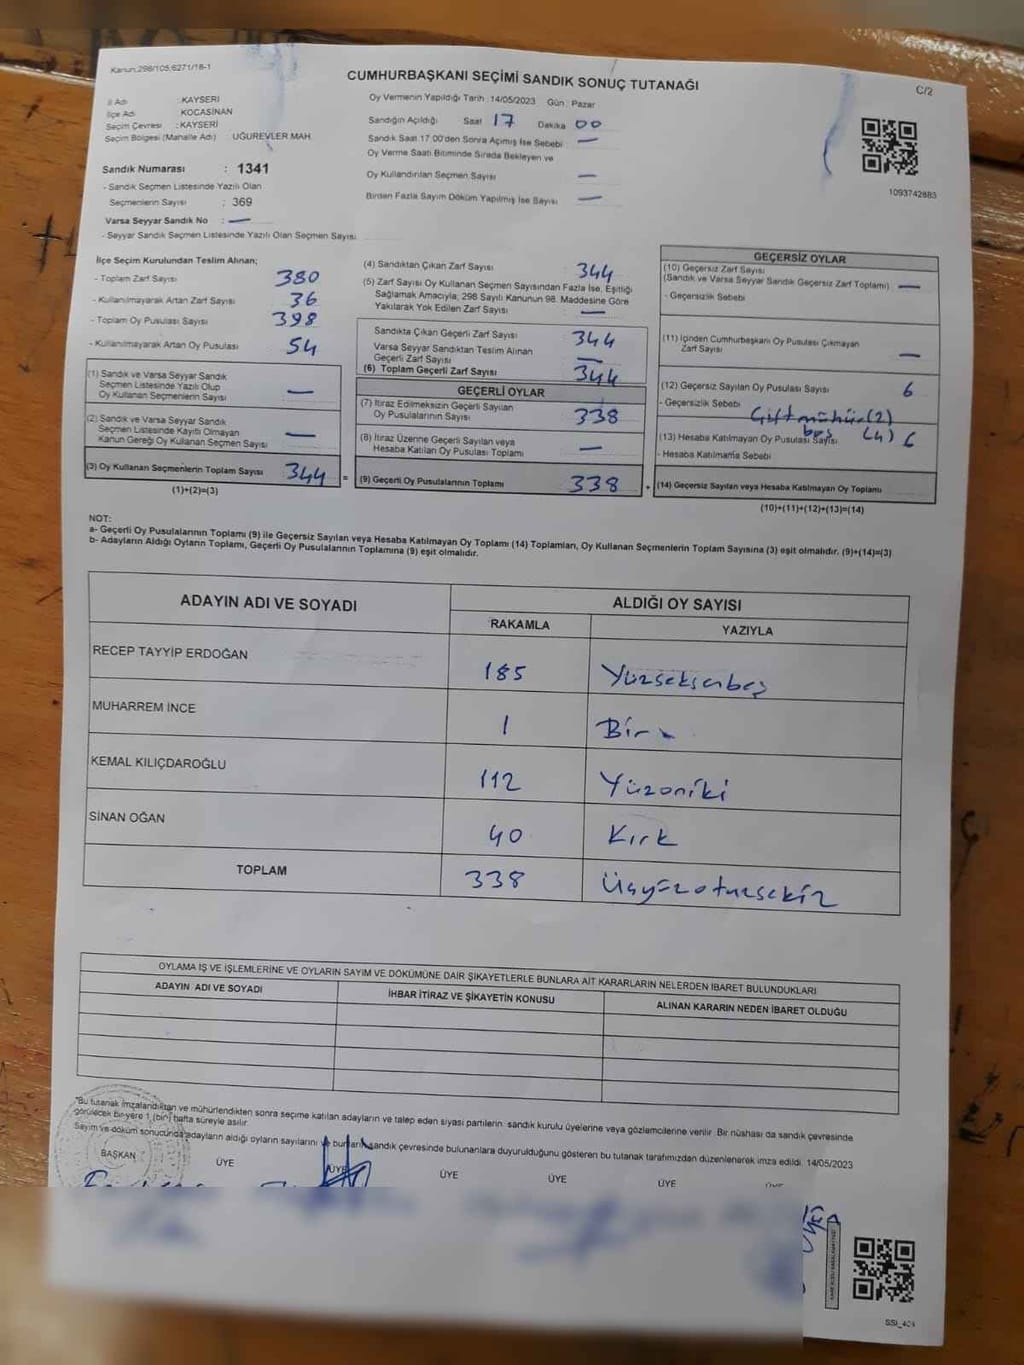 Kanun.298/105;6271/18-1
CUMHURBAŞKANI SEÇİMİ SANDIK SONUÇ TUTANAĞI
C/2
İl Adı : KAYSERİ
İlçe Adı : KOCASİNAN
Seçim Çevresi : KAYSERİ
Seçim Bölgesi (Mahalle Adı) UĞUREVLER MAH.
Sandık Numarası : 1341
- Sandık Seçmen Listesinde Yazılı Olan
Seçmenlerin Sayısı : 369
Varsa Seyyar Sandık No : —
- Seyyar Sandık Seçmen Listesinde Yazılı Olan Seçmen Sayısı
Oy Vermenin Yapıldığı Tarih : 14/05/2023 Gün : Pazar
Sandığın Açıldığı Saat 17 Dakika 00
Sandık Saat 17.00'den Sonra Açımış İse Sebebi —
Oy Verme Saati Bitiminde Sırada Bekleyen ve
Oy Kullandırılan Seçmen Sayısı —
Birden Fazla Sayım Döküm Yapılmış İse Sayısı —
1093742883
İlçe Seçim Kurulundan Teslim Alınan;
- Toplam Zarf Sayısı 380
- Kullanılmayarak Artan Zarf Sayısı 36
- Toplam Oy Pusulası Sayısı 398
- Kullanılmayarak Artan Oy Pusulası 54
(1) Sandık ve Varsa Seyyar Sandık
Seçmen Listesinde Yazılı Olup
Oy Kullanan Seçmenlerin Sayısı —
(2) Sandık ve Varsa Seyyar Sandık
Seçmen Listesinde Kayıtlı Olmayan
Kanun Gereği Oy Kullanan Seçmen Sayısı —
(3) Oy Kullanan Seçmenlerin Toplam Sayısı 344 =
(1)+(2)=(3)
(4) Sandıktan Çıkan Zarf Sayısı 344
(5) Zarf Sayısı Oy Kullanan Seçmen Sayısından Fazla İse, Eşitliği
Sağlamak Amacıyla; 298 Sayılı Kanunun 98. Maddesine Göre
Yakılarak Yok Edilen Zarf Sayısı —
Sandıkta Çıkan Geçerli Zarf Sayısı 344
Varsa Seyyar Sandıktan Teslim Alınan
Geçerli Zarf Sayısı —
(6) Toplam Geçerli Zarf Sayısı 344
GEÇERLİ OYLAR
(7) İtiraz Edilmeksizin Geçerli Sayılan
Oy Pusulalarının Sayısı 338
(8) İtiraz Üzerine Geçerli Sayılan veya
Hesaba Katılan Oy Pusulası Toplamı —
(9) Geçerli Oy Pusulalarının Toplamı 338 +
GEÇERSİZ OYLAR
(10) Geçersiz Zarf Sayısı
(Sandık ve Varsa Seyyar Sandık Geçersiz Zarf Toplamı) —
- Geçersizlik Sebebi
(11) İçinden Cumhurbaşkanı Oy Pusulası Çıkmayan
Zarf Sayısı —
(12) Geçersiz Sayılan Oy Pusulası Sayısı 6
- Geçersizlik Sebebi Çift mühür (2)
boş (4)
(13) Hesaba Katılmayan Oy Pusulası Sayısı 6
- Hesaba Katılmama Sebebi
(14) Geçersiz Sayılan veya Hesaba Katılmayan Oy Toplamı
(10)+(11)+(12)+(13)=(14)
NOT:
a- Geçerli Oy Pusulalarının Toplamı (9) ile Geçersiz Sayılan veya Hesaba Katılmayan Oy Toplamı (14) Toplamları, Oy Kullanan Seçmenlerin Toplam Sayısına (3) eşit olmalıdır. (9)+(14)=(3)
b- Adayların Aldığı Oyların Toplamı, Geçerli Oy Pusulalarının Toplamına (9) eşit olmalıdır.
ADAYIN ADI VE SOYADI
ALDIĞI OY SAYISI
RAKAMLA YAZIYLA
RECEP TAYYİP ERDOĞAN 185 Yüzseksenbeş
MUHARREM İNCE 1 Bir
KEMAL KILIÇDAROĞLU 112 Yüzoniki
SİNAN OĞAN 40 Kırk
TOPLAM 338 Üçyüzotuzsekiz
OYLAMA İŞ VE İŞLEMLERİNE VE OYLARIN SAYIM VE DÖKÜMÜNE DAİR ŞİKAYETLERLE BUNLARA AİT KARARLARIN NELERDEN İBARET BULUNDUKLARI
ADAYIN ADI VE SOYADI İHBAR İTİRAZ VE ŞİKAYETİN KONUSU ALINAN KARARIN NEDEN İBARET OLDUĞU
"Bu tutanak imzalandıktan ve mühürlendikten sonra seçime katılan adayların ve talep eden siyasi partilerin, sandık kurulu üyelerine veya gözlemcilerine verilir. Bir nüshası da sandık çevresinde
görülecek bir yere 1 (bir) hafta süreyle asılır.
Sayım ve döküm sonucunda adayların aldığı oyların sayılarını ve bunların sandık çevresinde bulunanlara duyurulduğunu gösteren bu tutanak tarafımızdan düzenlenerek imza edildi. 14/05/2023
BAŞKAN ÜYE ÜYE ÜYE ÜYE ÜYE ÜYE
SSİ_424